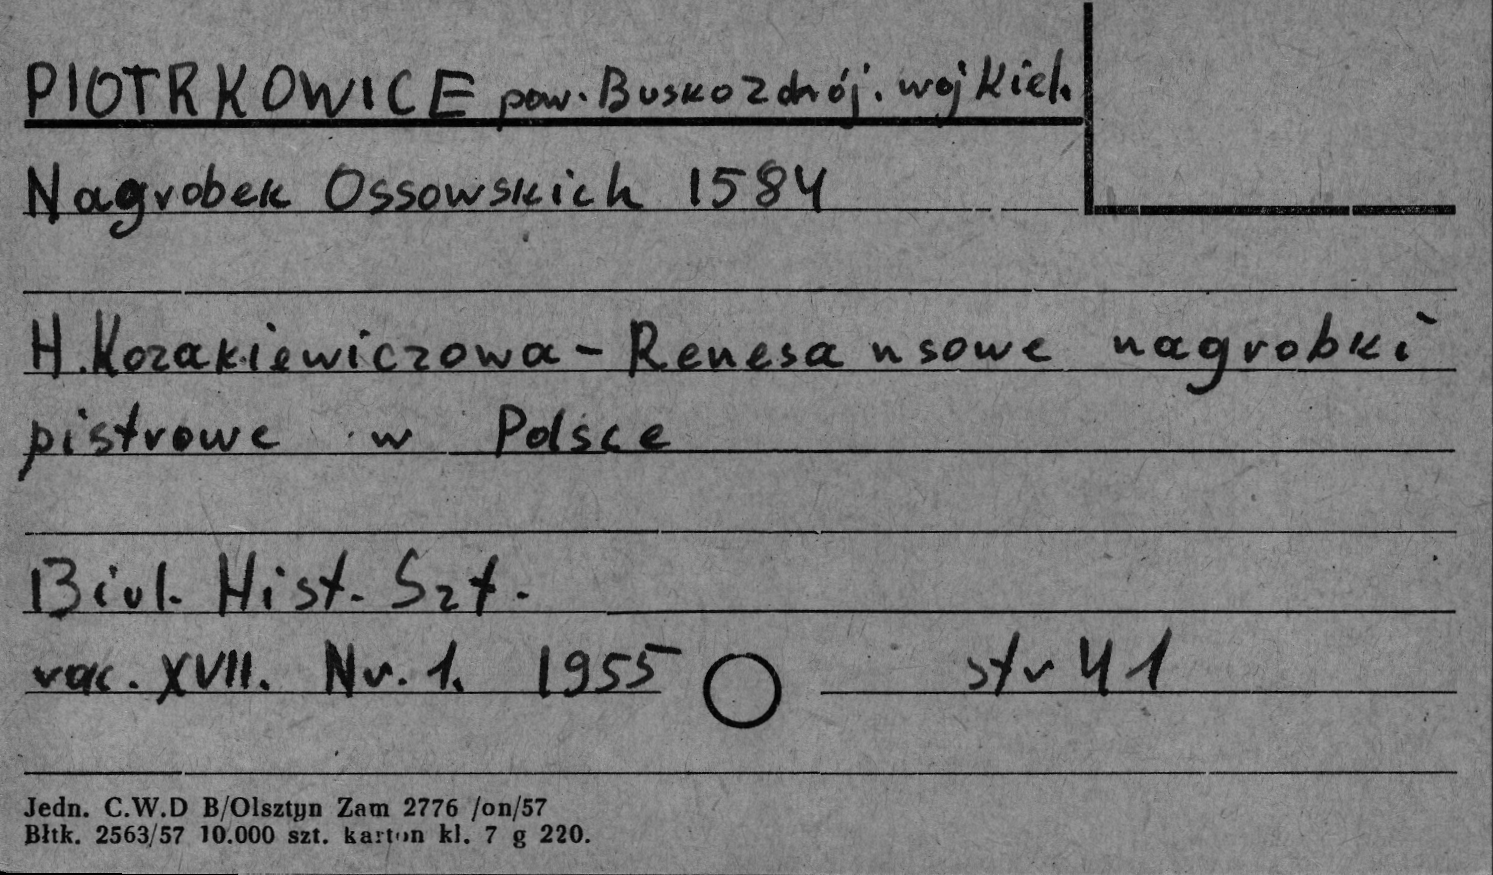 PIOTRKOWICE pow. Busko Zdrój. woj Kiel.
Nagrobek Ossowskich 1584
H. Kozakiewiczowa - Renesansowe nagrobki
pistrowe w Polsce
Biul. Hist. Szt.
roc. XVII. Nr. 1. 1955 str 41
Jedn. C.W.D B/Olsztyn Zam 2776 /on/57
Błtk. 2563/57 10.000 szt. karton kl. 7 g 220.